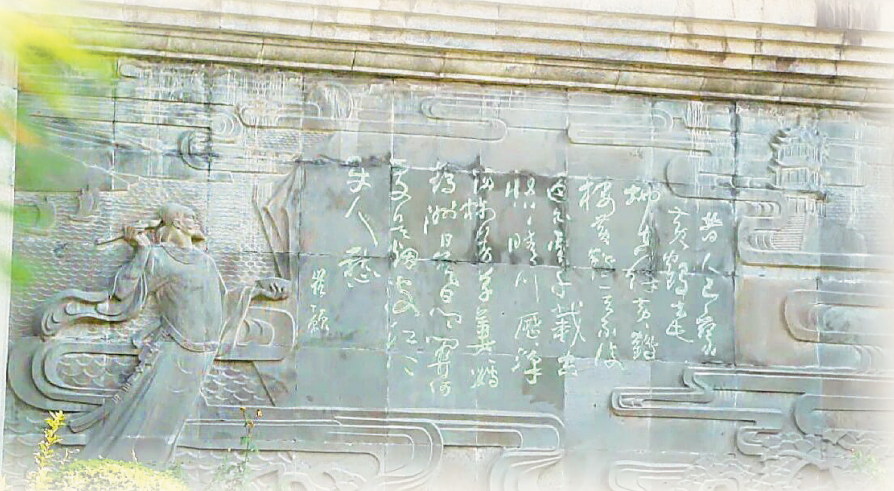 昔人已乘
黄鶴去
此地空餘黄鶴
樓黄鶴一去不復
返白雲千載空
悠悠晴川歷歷
漢陽樹芳草萋萋鸚
鵡洲日暮鄉關何
處是煙波江上
使人愁
崔顥